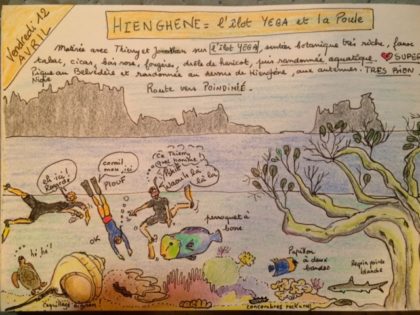 Vendredi 12
AVRIL
HIENGHENE = l'îlot YEGA et la Poule
Matinée avec Thierry et Jonathan sur l'îlot YEGA, sentier botanique très riche, faux
tabac, cicas, bois rose, fougères, drôle de haricot, puis randonnée aquatique. SUPER
Pique au Belvédère et randonnée au dessus de Hiengène, aux antennes. TRES BIEN
Niche
Route vers POINDIMIÉ.
eh ici!
Regarde
PLOUF
Ce Thierry
Quel
là là
ok
perroquet à
bosse
hi hi!
Papillon
à deux
bandes
Requin pointe
blanche
concombres